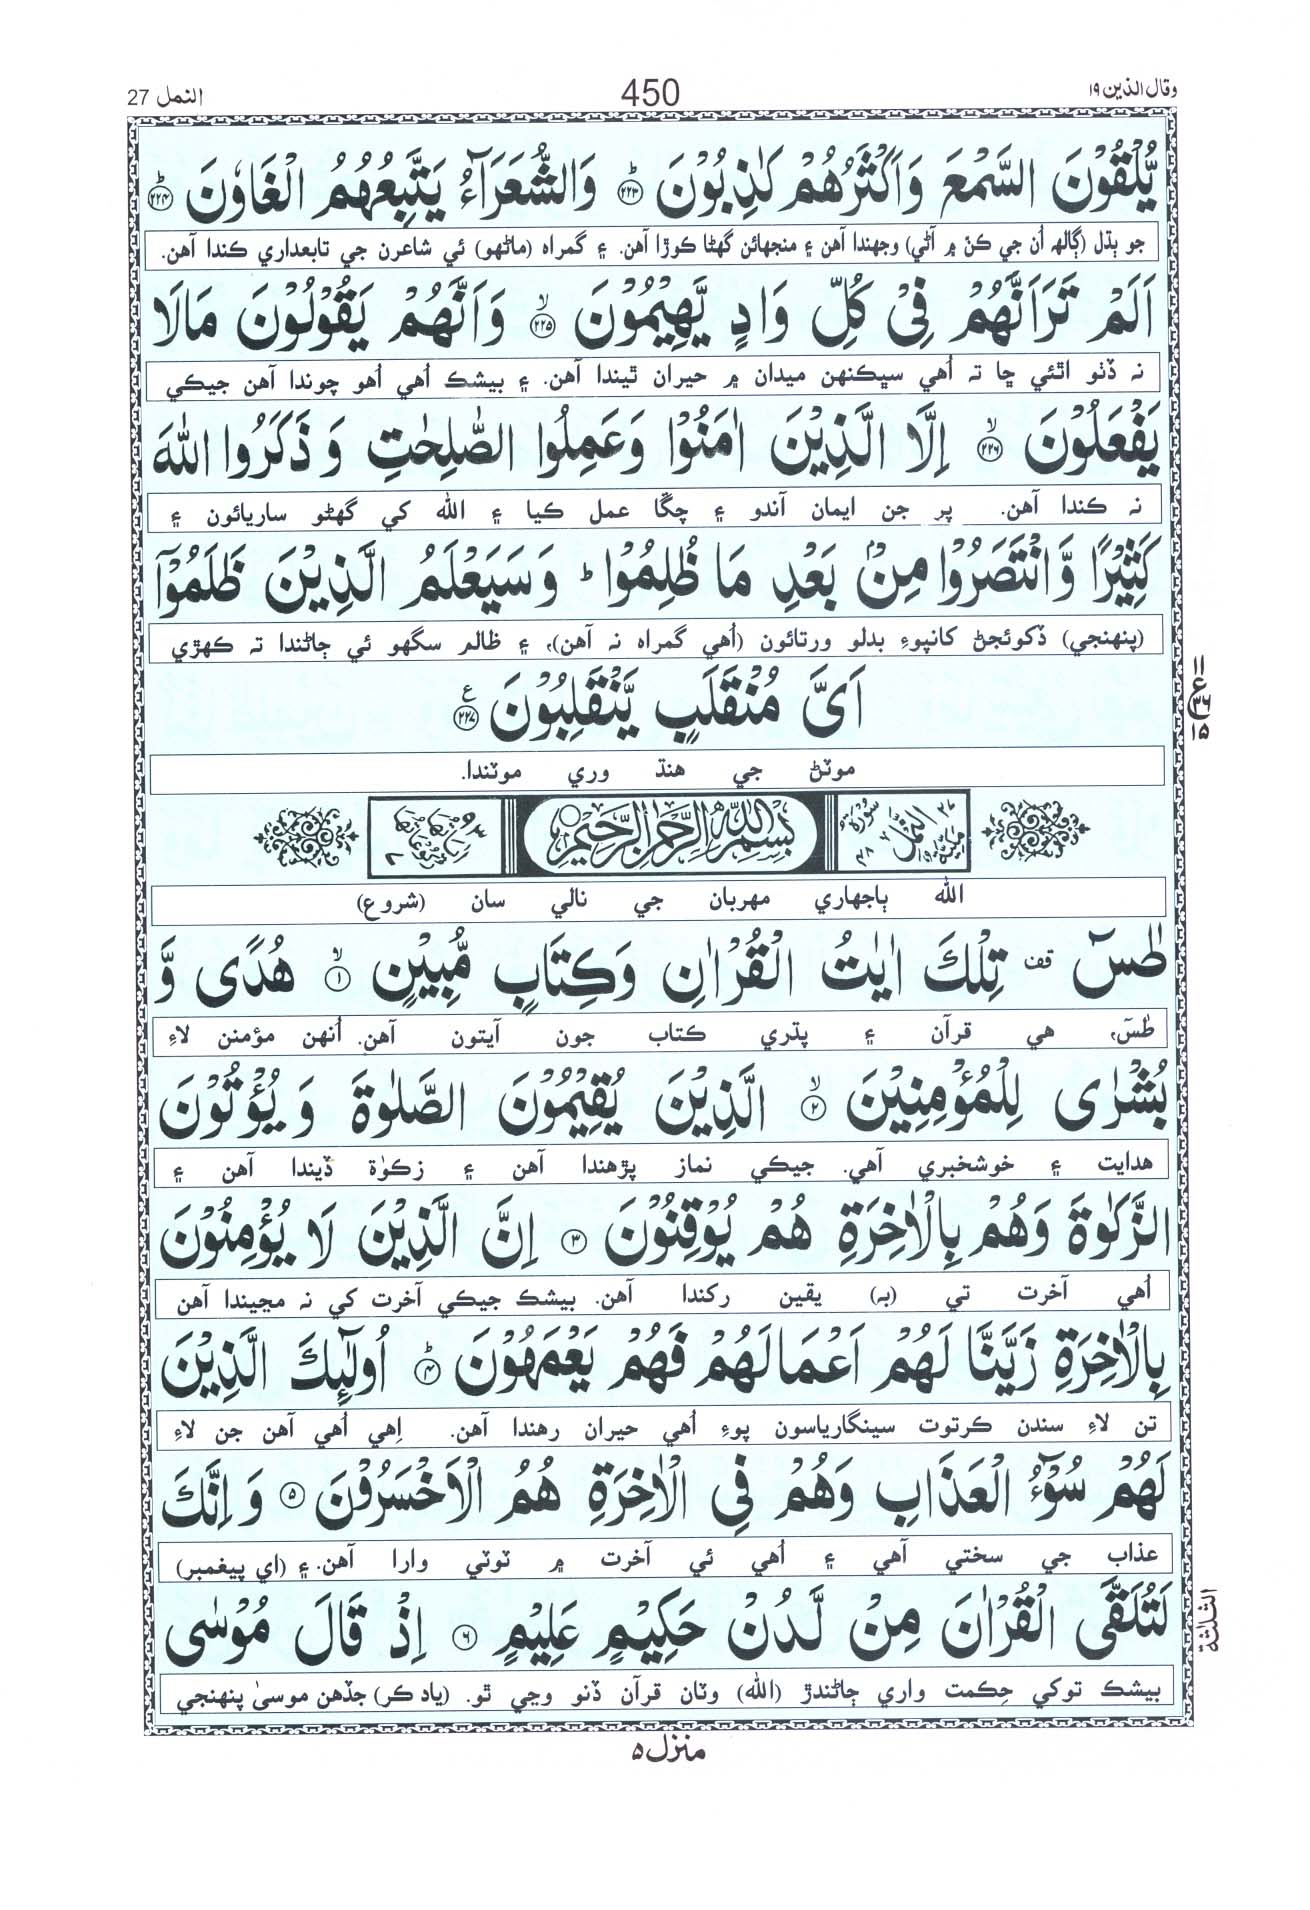 وقال الذين ۱۹ 450 النمل 27
يُّلْقُوْنَ السَّمْعَ وَاَكْثَرُهُمْ كٰذِبُوْنَ ؕ﴿۲۲۳﴾ وَالشُّعَرَآءُ يَتَّبِعُهُمُ الْغَاوٗنَ ؕ﴿۲۲۴﴾
جو ٻڌل (ڳالهہ اُن جي ڪن ۾ آڻي) وجهندا آهن ۽ منجهائن گهڻا ڪوڙا آهن. ۽ گمراه (ماڻهو) ئي شاعرن جي تابعداري ڪندا آهن.
اَلَمْ تَرَ اَنَّهُمْ فِيْ كُلِّ وَادٍ يَّهِيْمُوْنَ ۙ﴿۲۲۵﴾ وَاَنَّهُمْ يَقُوْلُوْنَ مَالَا
نہ ڏٺو اٿئي ڇا تہ اُهي سڀڪنهن ميدان ۾ حيران ٿيندا آهن. ۽ بيشڪ اُهي اُهو چوندا آهن جيڪي
يَفْعَلُوْنَ ۙ﴿۲۲۶﴾ اِلَّا الَّذِيْنَ اٰمَنُوْا وَعَمِلُوا الصّٰلِحٰتِ وَ ذَكَرُوا اللّٰهَ
نہ ڪندا آهن. پر جن ايمان آندو ۽ چڱا عمل ڪيا ۽ الله کي گهڻو ساريائون ۽
كَثِيْرًا وَّانْتَصَرُوْا مِنْۢ بَعْدِ مَا ظُلِمُوْا ؕ وَسَيَعْلَمُ الَّذِيْنَ ظَلَمُوْٓا
(پنهنجي) ڏکوئجڻ کانپوءِ بدلو ورتائون (اُهي گمراه نہ آهن)، ۽ ظالم سگهو ئي ڄاڻندا تہ ڪهڙي
اَيَّ مُنْقَلَبٍ يَّنْقَلِبُوْنَ ﴿۲۲۷﴾ ع
موٽڻ جي هنڌ وري موٽندا.
بِسْمِ اللّٰهِ الرَّحْمٰنِ الرَّحِيْمِ
الله ٻاجهاري مهربان جي نالي سان (شروع)
طٰسٓ قف تِلْكَ اٰيٰتُ الْقُرْاٰنِ وَكِتَابٍ مُّبِيْنٍ ۙ﴿۱﴾ هُدًى وَّ
طٰسٓ، هي قرآن ۽ پڌري ڪتاب جون آيتون آهن. اُنهن مؤمنن لاءِ
بُشْرٰى لِلْمُؤْمِنِيْنَ ۙ﴿۲﴾ الَّذِيْنَ يُقِيْمُوْنَ الصَّلٰوةَ وَ يُؤْتُوْنَ
هدايت ۽ خوشخبري آهي. جيڪي نماز پڙهندا آهن ۽ زڪوٰة ڏيندا آهن ۽
الزَّكٰوةَ وَهُمْ بِالْاٰخِرَةِ هُمْ يُوْقِنُوْنَ ﴿۳﴾ اِنَّ الَّذِيْنَ لَا يُؤْمِنُوْنَ
اُهي آخرت تي (بہ) يقين رکندا آهن. بيشڪ جيڪي آخرت کي نہ مڃيندا آهن
بِالْاٰخِرَةِ زَيَّنَّا لَهُمْ اَعْمَالَهُمْ فَهُمْ يَعْمَهُوْنَ ؕ﴿۴﴾ اُولٰٓئِكَ الَّذِيْنَ
تن لاءِ سندن ڪرتوت سينگارياسون پوءِ اُهي حيران رهندا آهن. اِهي اُهي آهن جن لاءِ
لَهُمْ سُوْٓءُ الْعَذَابِ وَهُمْ فِي الْاٰخِرَةِ هُمُ الْاَخْسَرُوْنَ ﴿۵﴾ وَ اِنَّكَ
عذاب جي سختي آهي ۽ اُهي ئي آخرت ۾ ٽوٽي وارا آهن. ۽ (اي پيغمبر)
لَتُلَقَّى الْقُرْاٰنَ مِنْ لَّدُنْ حَكِيْمٍ عَلِيْمٍ ﴿۶﴾ اِذْ قَالَ مُوْسٰى
بيشڪ توکي حِڪمت واري ڄاڻندڙ (الله) وٽان قرآن ڏنو وڃي ٿو. (ياد ڪر) جڏهن موسيٰ پنهنجي
منزل ۵
الثلٰثة